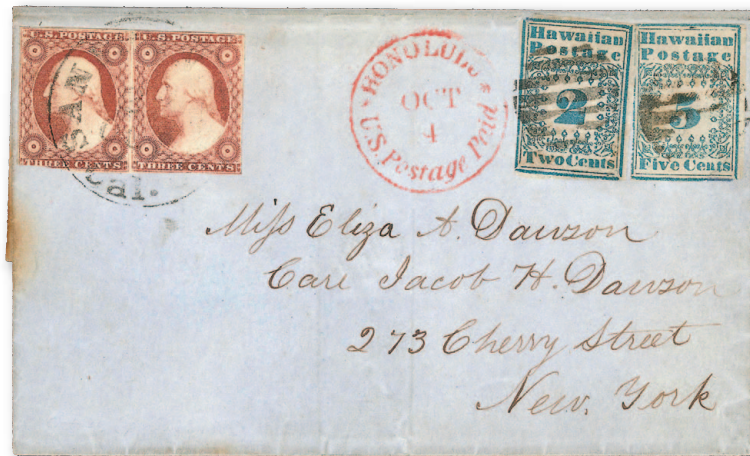 U.S. POSTAGE
THREE CENTS
U.S. POSTAGE
THREE CENTS
SAN
Cal.
HONOLULU
OCT
4
U.S. Postage Paid
Hawaiian
Postage
2
Two Cents
Hawaiian
Postage
5
Five Cents
Miss Eliza A. Dawson
Care Jacob H. Dawson
273 Cherry Street
New York